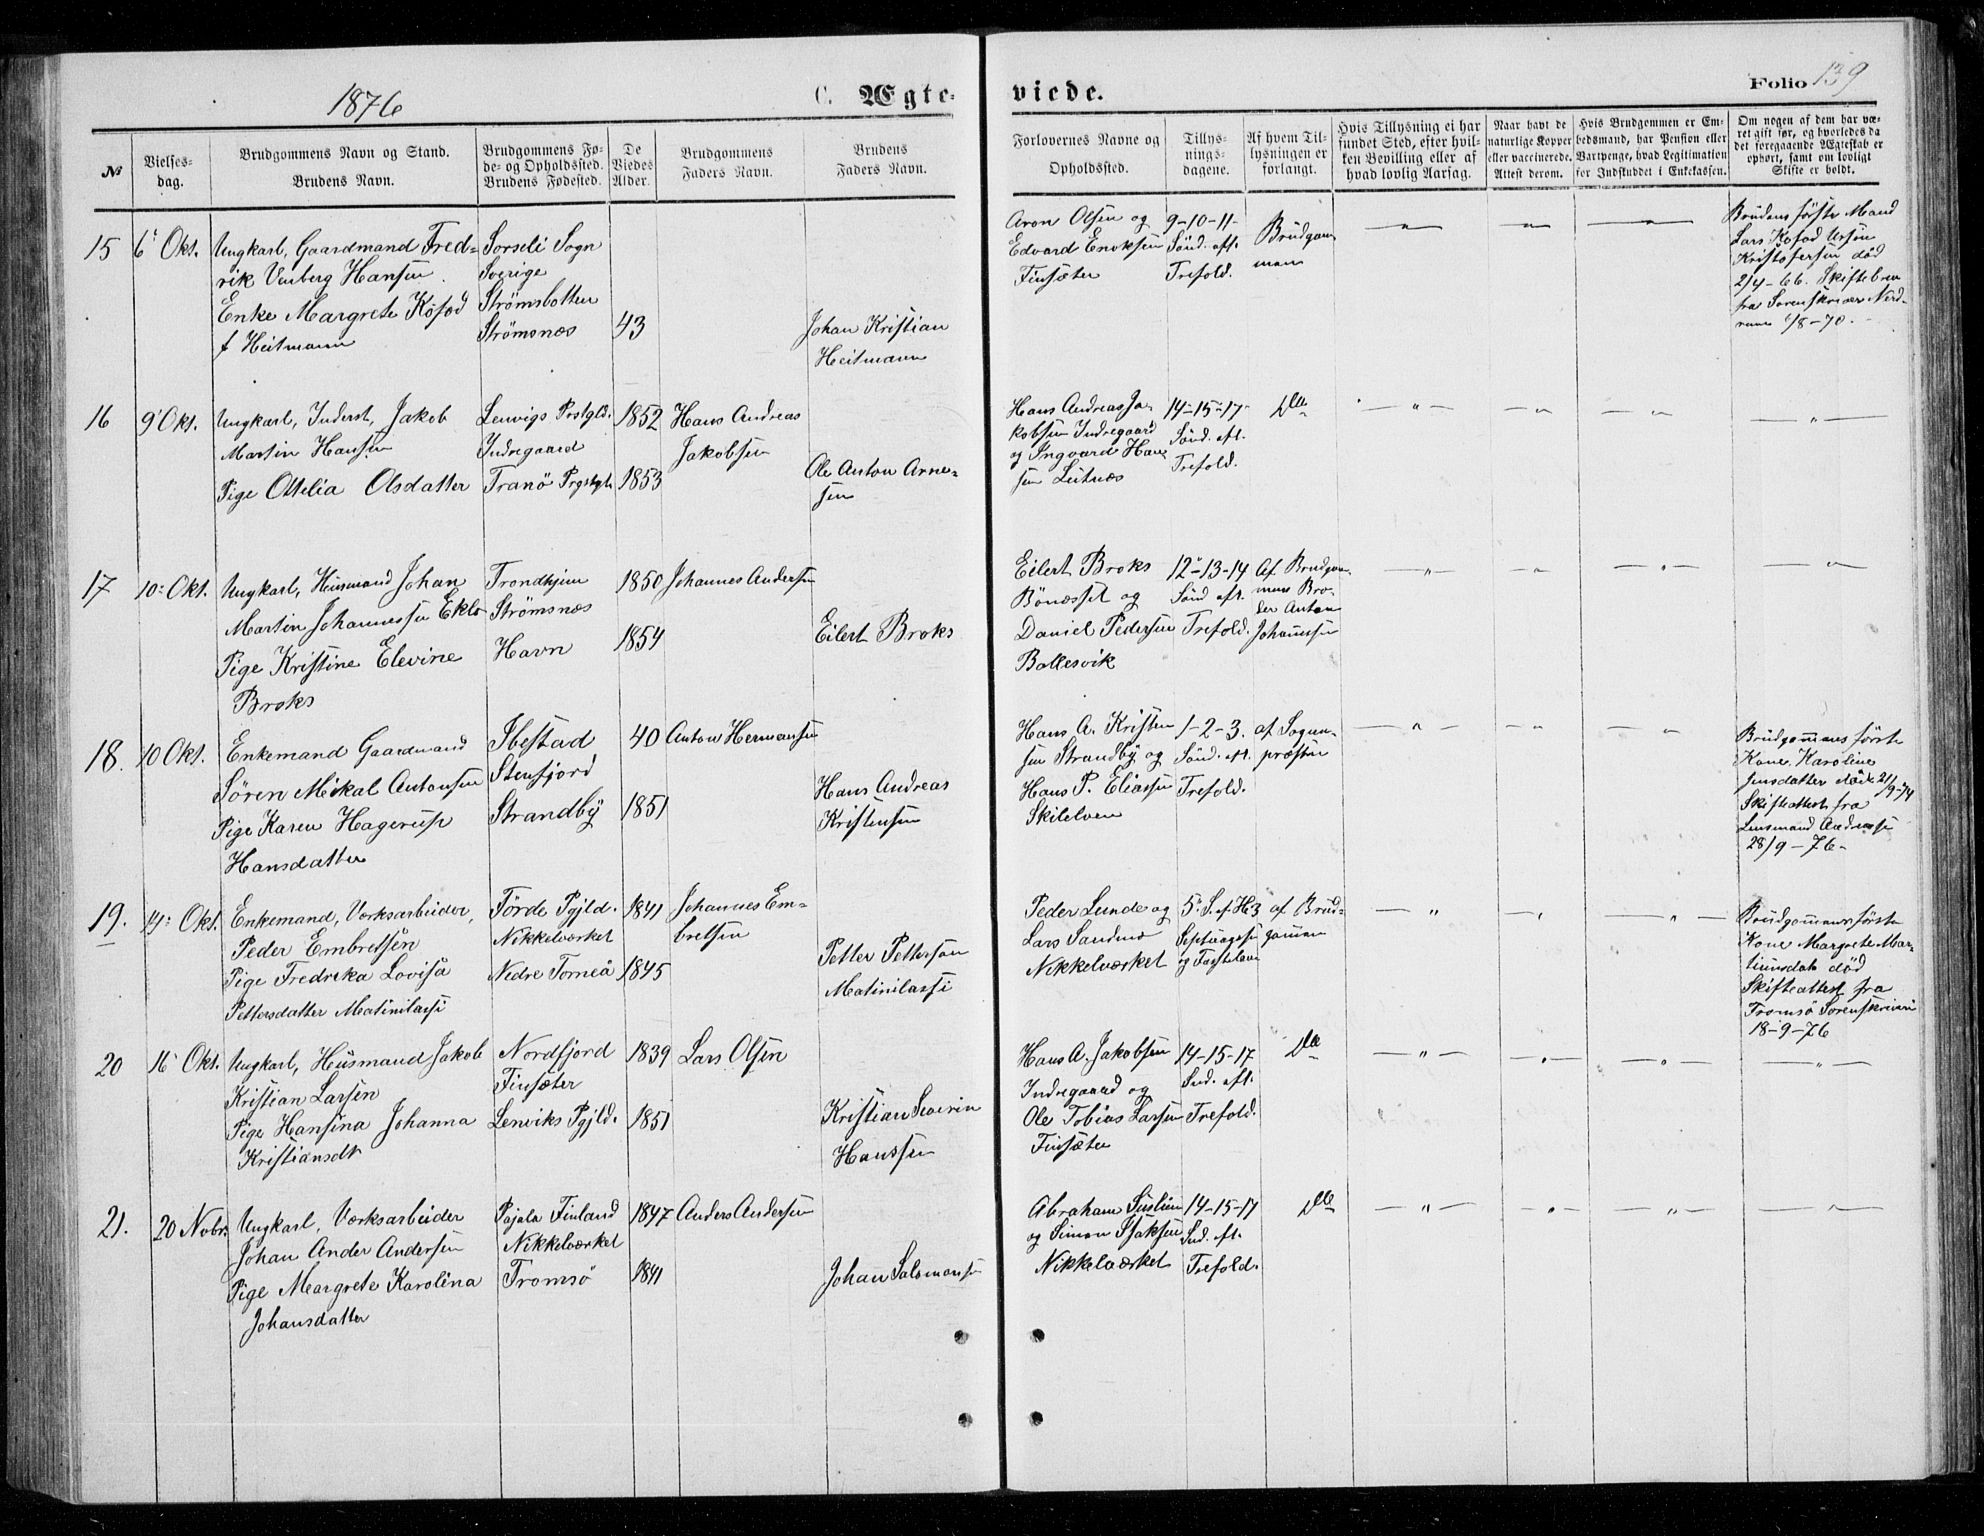 1876
C. Ægte-
viede.
Folio 139
No
Vielses-
dag.
Brudgommens Navn og Stand.
Brudens Navn.
Brudgommens Fø-
de- og Opholdssted.
Brudens Fødested.
De
Viedes
Alder.
Brudgommens
Faders Navn.
Brudens
Faders Navn.
Forlovernes Navne og
Opholdssted.
Tillys-
nings-
dagene.
Af hvem Til-
lysningen er
forlangt.
Hvis Tillysning ei har
fundet Sted, efter hvil-
ken Bevilling eller af
hvad lovlig Aarsag.
Naar havt de
naturlige Kopper
eller vaccinerede.
Attest derom.
Hvis Brudgommen er Em-
bedsmand, har Pension eller
Vartpenge, hvad Legitimation
for Indskuddet i Enkekassen.
Om nogen af dem har væ-
ret gift før, og hvorledes da
det foregaaende Ægteskab er
ophørt, samt om lovligt
Skifte er holdt.
15
6' Okt.
Ungkarl, Gaardmand Fred-
rik Vinberg Hansen
Enke Margrete Kofod
f Heitmann
Sorseli Sogn
Sverige
Strömsbotten
Strömsnæs
43
Johan Kristian
Heitmann
Aron Olsen og
Edvard Enoksen
Finsæter
9-10-11-
Sönd. eft.
Trefold.
Brudgom
men
Brudens förste Mand
Lars Kofod Ursin
Kristofersen död
2/4-66. Skiftebrev
fra Sorenskriver Nord-
-8-70.
16
9' Okt.
Ungkarl, Inderst, Jakob
Martin Hansen
Pige Ottelia Olsdatter
Lenvigs Prstgld.
Indregaard
Tranö Prgstgld
1852
1853
Hans Andreas
Jakobsen
Ole Anton Arne-
sen
Hans Andreas Ja-
kobsen Indregaard
og Ingvard Han
sen Leitnæs
14-15-17-
Sönd. eft.
Trefold.
Dto
17
10: Okt.
Ungkarl, Husmand Johan
Martin Johannessen Eklo
Pige Kristine Elevine
Broks
Trondhjem
Strömsnæs
Havn
1850
1854
Johannes Andersen
Eilert Broks
Eilert Broks
Bönæsset og
Daniel Pedersen
Ballesvik
12-13-14
Sönd eft.
Trefold.
Af Brudgom
mens Bro-
der Anton
Johannessen
18.
10 Okt.
Enkemand Gaardmand
Sören Mikal Antonsen
Pige Karen Hagerup
Hansdatter
Ibestad
Stenfjord
Strandby
40
1851
Anton Hermansen
Hans Andreas
Kristensen
Hans A. Kristen
sen Strandby og
Hans P. Eliassen
Skilelven
1-2-3.
Sönd. eft.
Trefold.
af Sogne-
præsten
Brudgommens förste
Kone Karoline
Jensdatter död 21/9-74
Skifteattest fra
Lensmand Andreassen
28/9-76-
19.
14: Okt.
Enkemand, Værksarbeider,
Peder Embretsen
Pige Fredrika Lovisa
Pettersdatter Matinilassi
Förde Pgjld.
Nikkelværket
Nedre Torneå
1841
1845
Johannes Em-
bretsen
Petter Petterson
Matinilassi
Peder Lunde og
Lars Sandmo
Nikkelværket
5' S. af H3
Septuages
og Fastelavn
af Brud-
gommen
Brudgommens förste
Kone Margrete Mar-
tinusdatr död
Skifteattest fra
Tromsö Sorenskriveri
18-9-76
20
16' Okt.
Ungkarl, Husmand Jakob
Kristian Larsen
Pige Hansina Johanna
Kristiansdtr
Nordfjord
Finsæter
Lenviks Pgjld.
1839
1851
Lars Olsen
Kristian Severin
Hanssen
Hans A. Jakobsen
Indregaard og
Ole Tobias Larsen
Finsæter
14-15-17
Snd. eft.
Trefold.
Dto
21.
20 Novbr.
Ungkarl, Værksarbeider
Johan Ander Andersen
Pige Margrete Karolina
Johansdatter
Pajala Finland
Nikkelværket
Tromsö
1847
1841
Anders Andersen
Johan Salomonsen
Abraham
og Simon Isaksen
Nikkelværket
14-15-17
Snd. eft.
Trefold.
Dto